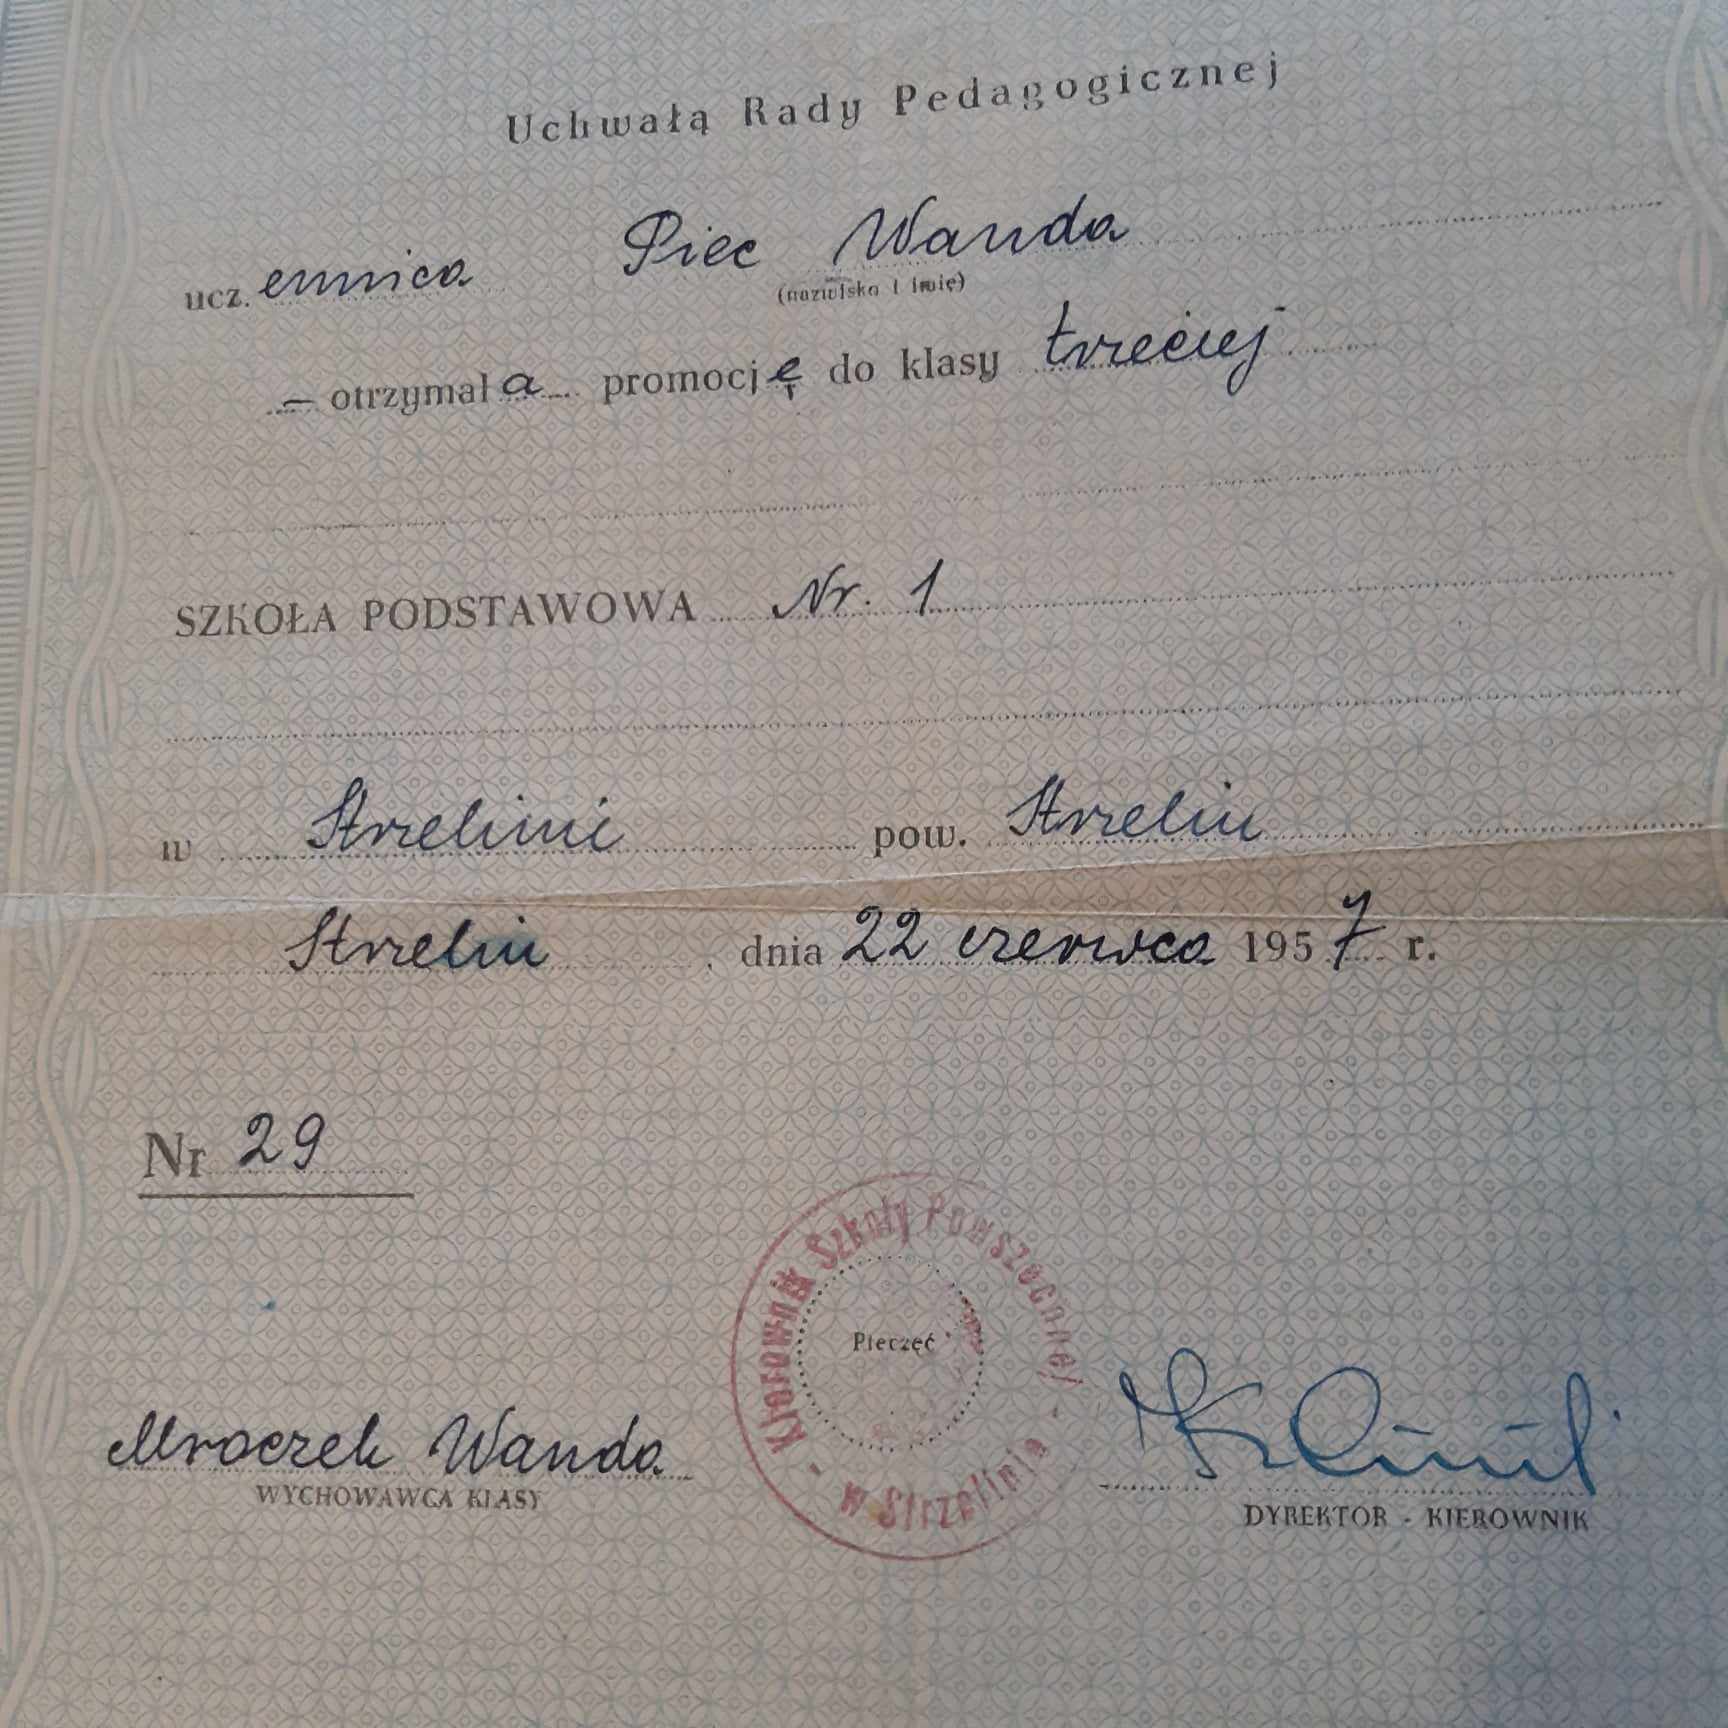 Uchwałą Rady Pedagogicznej
ucz. ennica Piec Wanda
(nazwisko i imię)
— otrzymał a promocję do klasy trzeciej
SZKOŁA PODSTAWOWA Nr. 1
w Strzelinie pow. Strzelin
Strzelin, dnia 22 czerwca 1957 r.
Nr 29
Kierownik Szkoły Powszechnej
- w Strzelinie -
Pieczęć
Mroczek Wanda
WYCHOWAWCA KLASY
DYREKTOR - KIEROWNIK